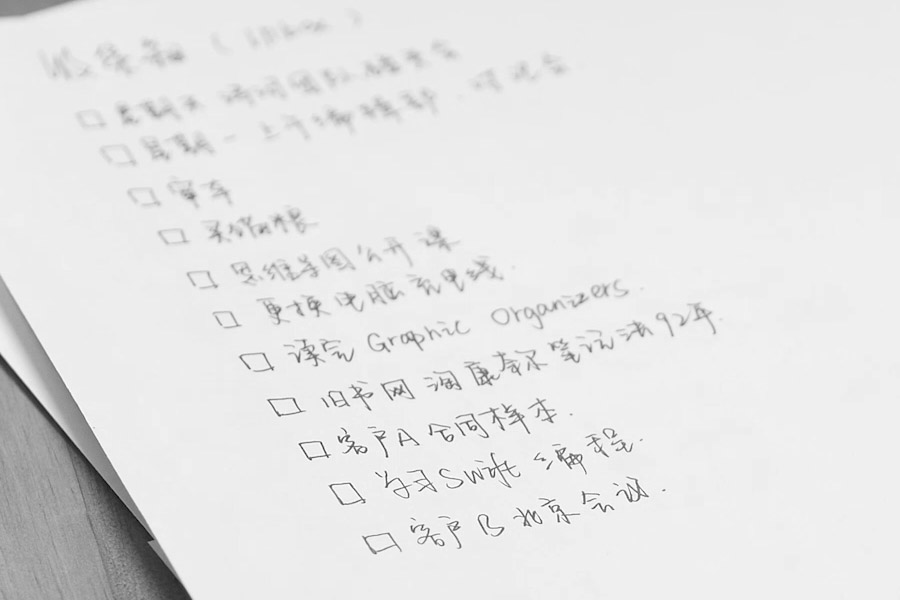 收集箱 (Inbox)
星期天
星期一上午
审车
买猫粮
思维导图公开课
更换电脑充电线.
读完 Graphic Organizers.
旧书网 淘康奈尔笔记法92年.
客户A合同样本.
学习Swift 编程.
客户B北京会议.